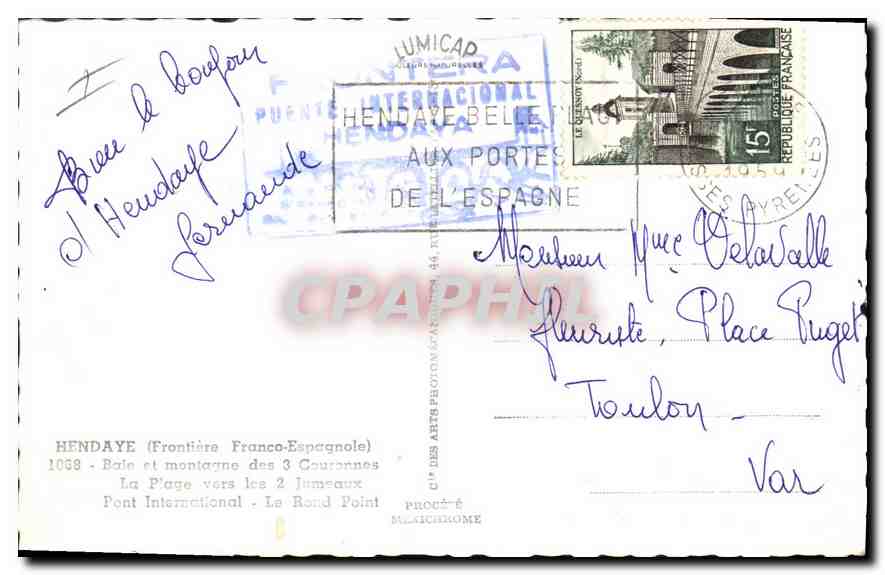 LUMICAP
COULEURS NATURELLES
FRONTERA
PUENTE INTERNACIONAL
HENDAYA
HENDAYE BELLE PLAGE
AUX PORTES
DE L'ESPAGNE
LE QUESNOY (Nord)
15F
POSTES
REPUBLIQUE FRANÇAISE
1959
SES PYRENEES
Bien le bonjour
d'Hendaye
Fernande
Monsieur Mme Delavalle
fleuriste, Place Puget
Toulon
Var
CPAPHIL
HENDAYE (Frontière Franco-Espagnole)
1068 - Baie et montagne des 3 Couronnes
La Plage vers les 2 Jumeaux
Pont International - Le Rond Point
Cie DES ARTS PHOTOMÉCANIQUES, 44, RUE
PROCÉDÉ
MEXICHROME